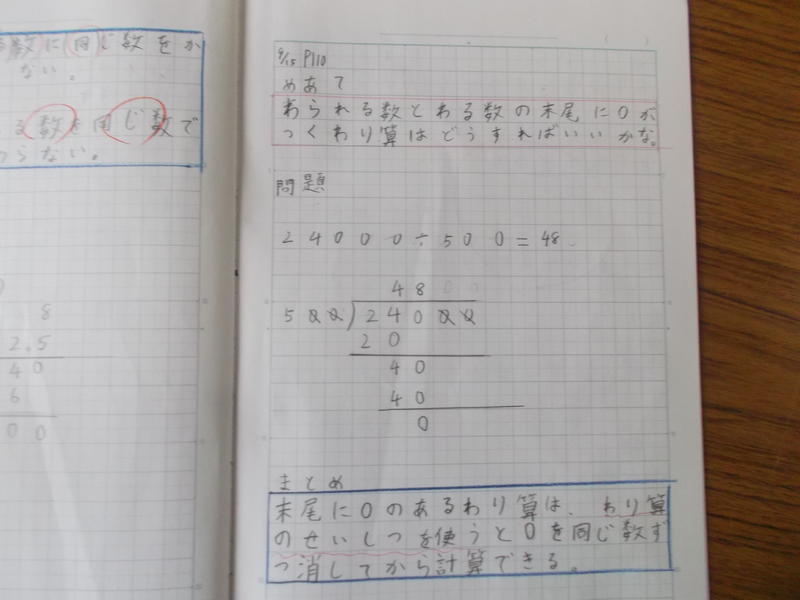 数に同じ数をか
ない。
る数を同じ数で
わらない。
8
2.5
40
6
00
9/15 P110
めあて
わられる数とわる数の末尾に0が
つくわり算はどうすればいいかな。
問題
24000÷500=48
48
500)24000
20
40
40
0
まとめ
末尾に0のあるわり算は、わり算
のせいしつを使うと0を同じ数ず
つ消してから計算できる。